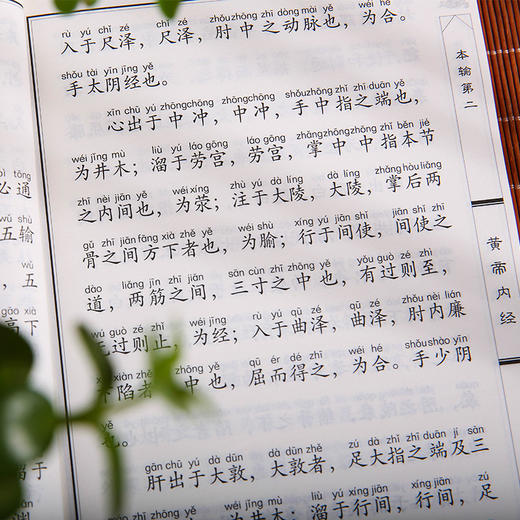 rù yú chǐ zé chǐ zé zhǒuzhōng zhī dòng mài yě wéi hé
入于尺泽，尺泽，肘中之动脉也，为合。
shǒu tài yīn jīng yě
手太阴经也。
xīn chū yú zhōngchōng zhōngchōng shǒuzhōng zhǐ zhī duān yě
心出于中冲，中冲，手中指之端也，
wéi jǐng mù liù yú láo gōng láo gōng zhǎngzhōngzhōng zhǐ běn jié
为井木；溜于劳宫，劳宫，掌中中指本节
zhī nèi jiān yě wéi xíng zhù yú dà líng dà líng zhǎng hòu liǎng
之内间也，为荥；注于大陵，大陵，掌后两
gǔ zhī jiān fāng xià zhě yě wéi shù xíng yú jiān shǐ jiān shǐ zhī
骨之间方下者也，为腧；行于间使，间使之
dào liǎng jīn zhī jiān sān cùn zhī zhōng yě yǒu guò zé zhì
道，两筋之间，三寸之中也，有过则至，
wú guò zé zhǐ wéi jīng rù yú qū zé qū zé zhǒu nèi lián
无过则止，为经；入于曲泽，曲泽，肘内廉
xiàn zhě zhī zhōng yě qū ér dé zhī wéi hé shǒu shào yīn
下陷者之中也，屈而得之，为合。手少阴
也。
gān chū yú dà dūn dà dūn zhě zú dà zhǐ zhī duān jí sān
肝出于大敦，大敦者，足大指之端及三
wéi jǐng mù liù yú xíng jiān xíng jiān zú
为井木；溜于行间，行间，足
本输第二
黄帝内经
bì tōng
必通
wǔ shù
五输
wǔ
，五
gāo xià
高下
溜于